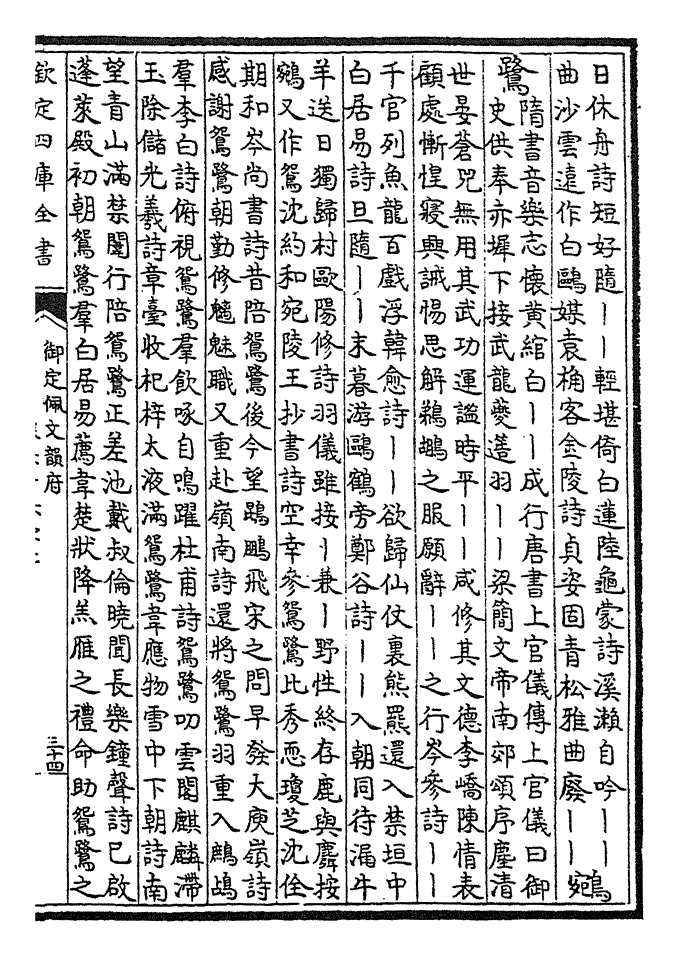 日休舟詩短好隨——輕堪倚白蓮陸龜蒙詩溪瀨自吟——
曲沙雲遠作白鷗媒袁桷客金陵詩貞姿固青松雅曲廢——
鵷
鷺
隋書音樂志懷黃綰白——成行唐書上官儀傳上官儀曰御
史供奉赤墀下接武龍夔簉羽——梁簡文帝南郊頌序塵清
世晏蒼兕無用其武功運謐時平——咸修其文德李嶠陳情表
顧處慚惶寢興誡惕思解鵜鶘之服願辭——之行岑參詩——
千官列魚龍百戲浮韓愈詩——欲歸仙仗裏熊羆還入禁垣中
白居易詩旦隨——末暮游鷗鶴旁鄭谷詩——入朝同待漏牛
羊送日獨歸村歐陽修詩羽儀雖接—兼—野性終存鹿與麞按
鵷又作鴛沈約和宛陵王抄書詩空幸參鴛鷺比秀恧瓊芝沈佺
期和岑尚書詩昔陪鴛鷺後今望鵾鵬飛宋之問早發大庾嶺詩
感謝鴛鷺朝勤修魑魅職又重赴嶺南詩還將鴛鷺羽重入鷓鴣
羣李白詩俯視鴛鷺羣飲啄自鳴躍杜甫詩鴛鷺叨雲閣麒麟滯
玉除儲光羲詩章臺收杞梓太液滿鴛鷺韋應物雪中下朝詩南
望青山滿禁闈行陪鴛鷺正差池戴叔倫曉聞長樂鐘聲詩已啟
蓬萊殿初朝鴛鷺羣白居易薦韋楚狀降羔雁之禮命助鴛鷺之
欽定四庫全書
御定佩文韻府
三十四